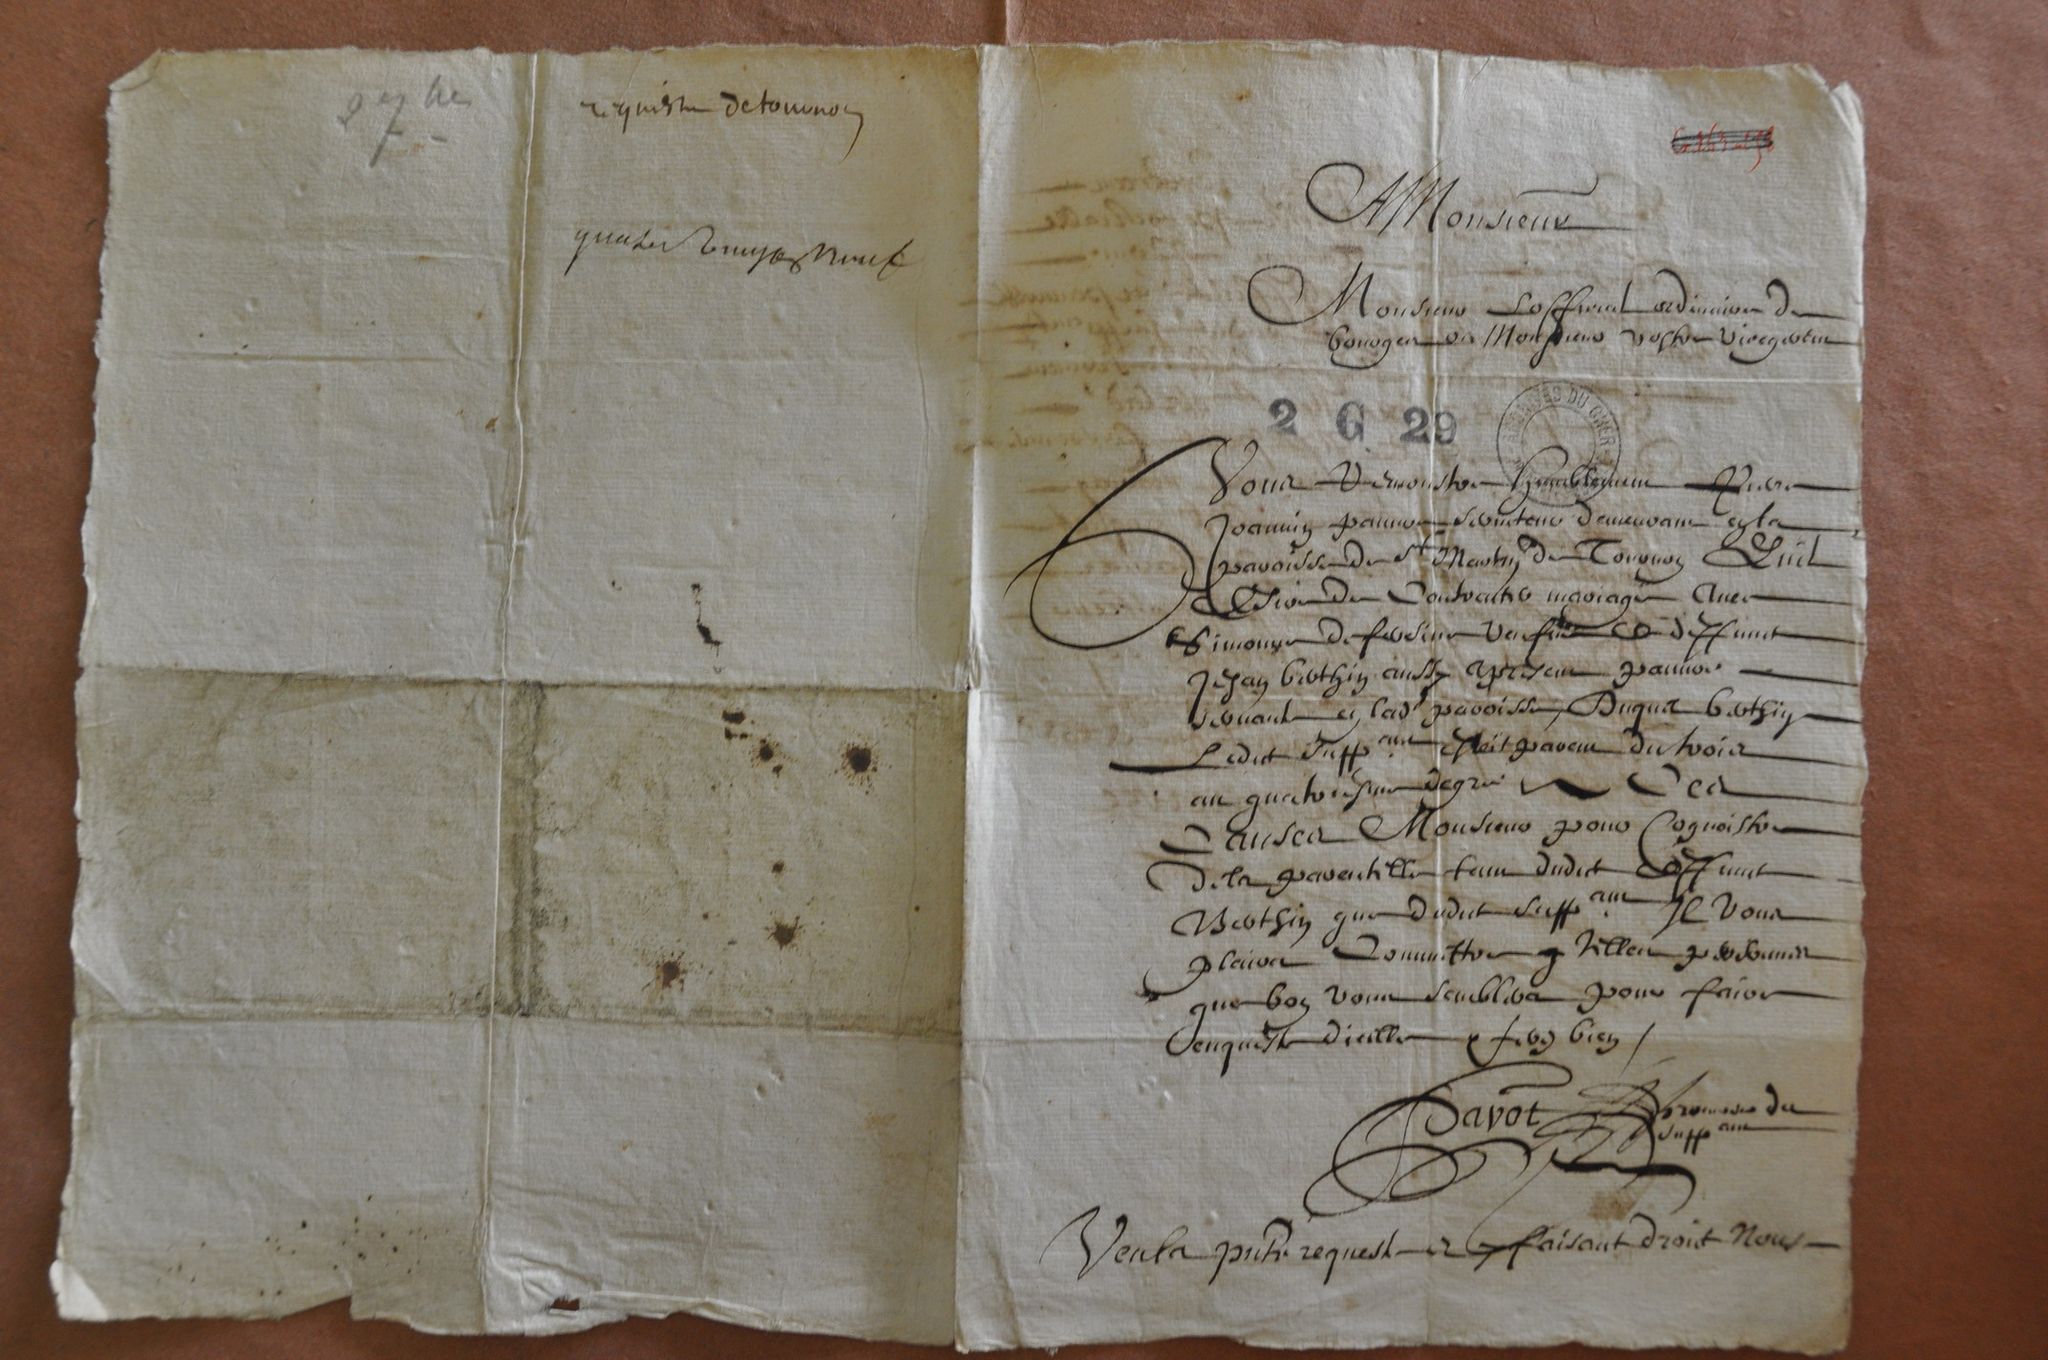 requeste de tournoy
A Monsieur
Monsieur Lofficial ordinaire de
bourges ou Monsieur vostre vicegerent
2 G 29
ARCHIVES DU CHER
Vous Remonstre humblement
Joannin pauvre serviteur demeurant en la
parroisse de St Martin de Tournoy Quil
desire de Contracter mariage Avec
Simonne de vefve de deffunct
Jehan berthin aussy a present pauvre
servante en lad parroisse, Duquel berthin
Ledict Supp ant estoit parent du trois
au quatriesme degre Ce
Causer Monsieur pour Cognoistre
de la parentelle tant dudict deffunct
Berthin que dudict supp ant Il vous
plaira Commettre telles personnes
que bon vous semblera pour faire
enqueste dicelle & ferez bien /
du
supp ant
Veu la pnte requeste et faisant droict Nous